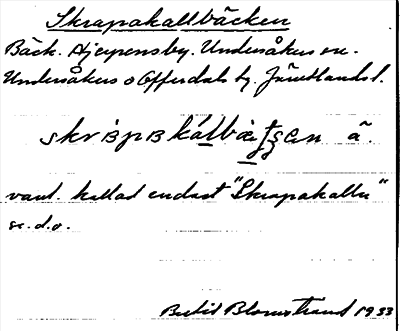 Skrapakallbäcken
Bäck. Hjerpens by. Undersåkers sn.
Undersåkers o Offerdals tg. Jämtlands l.
å.
vanl. kallad endast "Skrapakalln"
se. d.o.
Bertil Blomstrand 1933